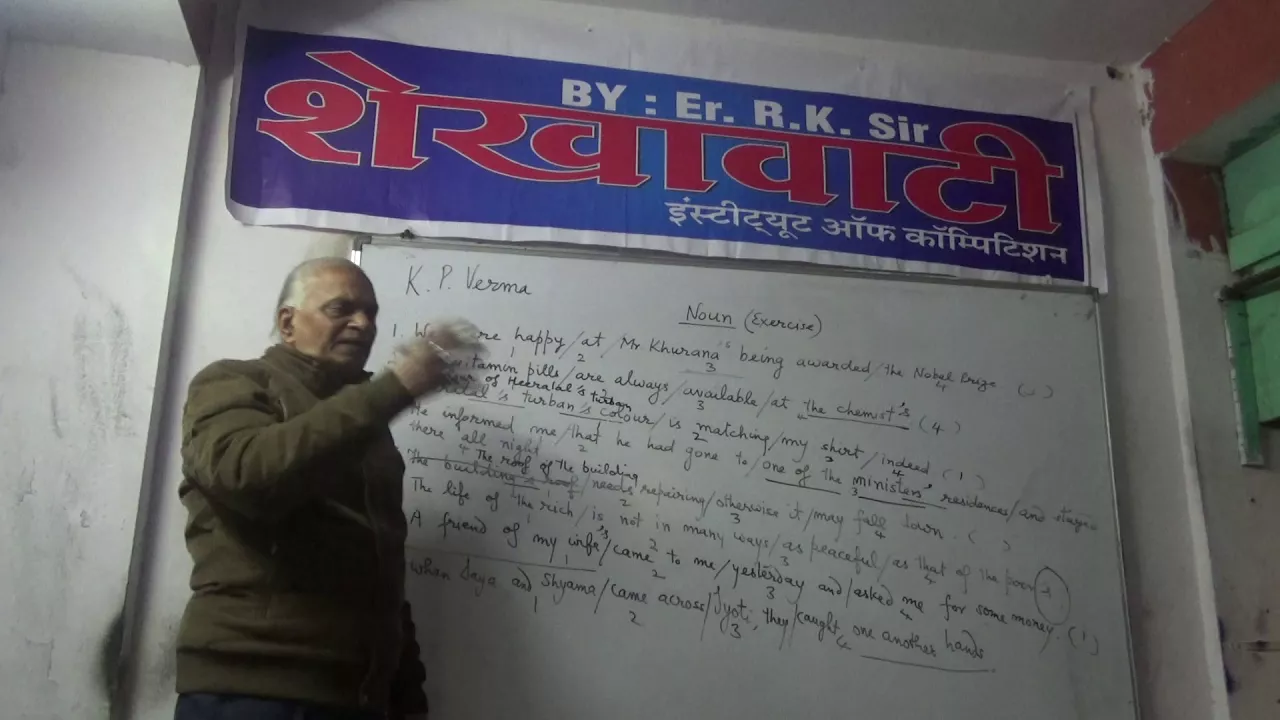 BY : Er. R.K. Sir
शेखावाटी
इंस्टीट्यूट ऑफ कॉम्पिटिशन
K. P. Verma
Noun (Exercise)
1. We are happy/at Mr Khurana's being awarded/the Nobel Prize
1 2 3 4
vitamin pills/are always/available/at the chemist's (4)
3 4
of Heeralal's turban
turban's colour/is matching/my shirt/indeed (1)
1 2 3 4
He informed me/that he had gone to/one of the ministers' residences/and stayed
2 3
there all night
4 The roof of the building
the building's roof/needs repairing/otherwise it/may fall down. ( )
1 2 3 4
The life of the rich/is not in many ways/as peaceful/as that of the poor's.
1 2 3 4
A friend of my wife's/came to me/yesterday and/asked me for some money. (1)
1 2 3 4
when Jaya and Shyama/came across/Jyoti, they/caught one another hands
1 2 3 4